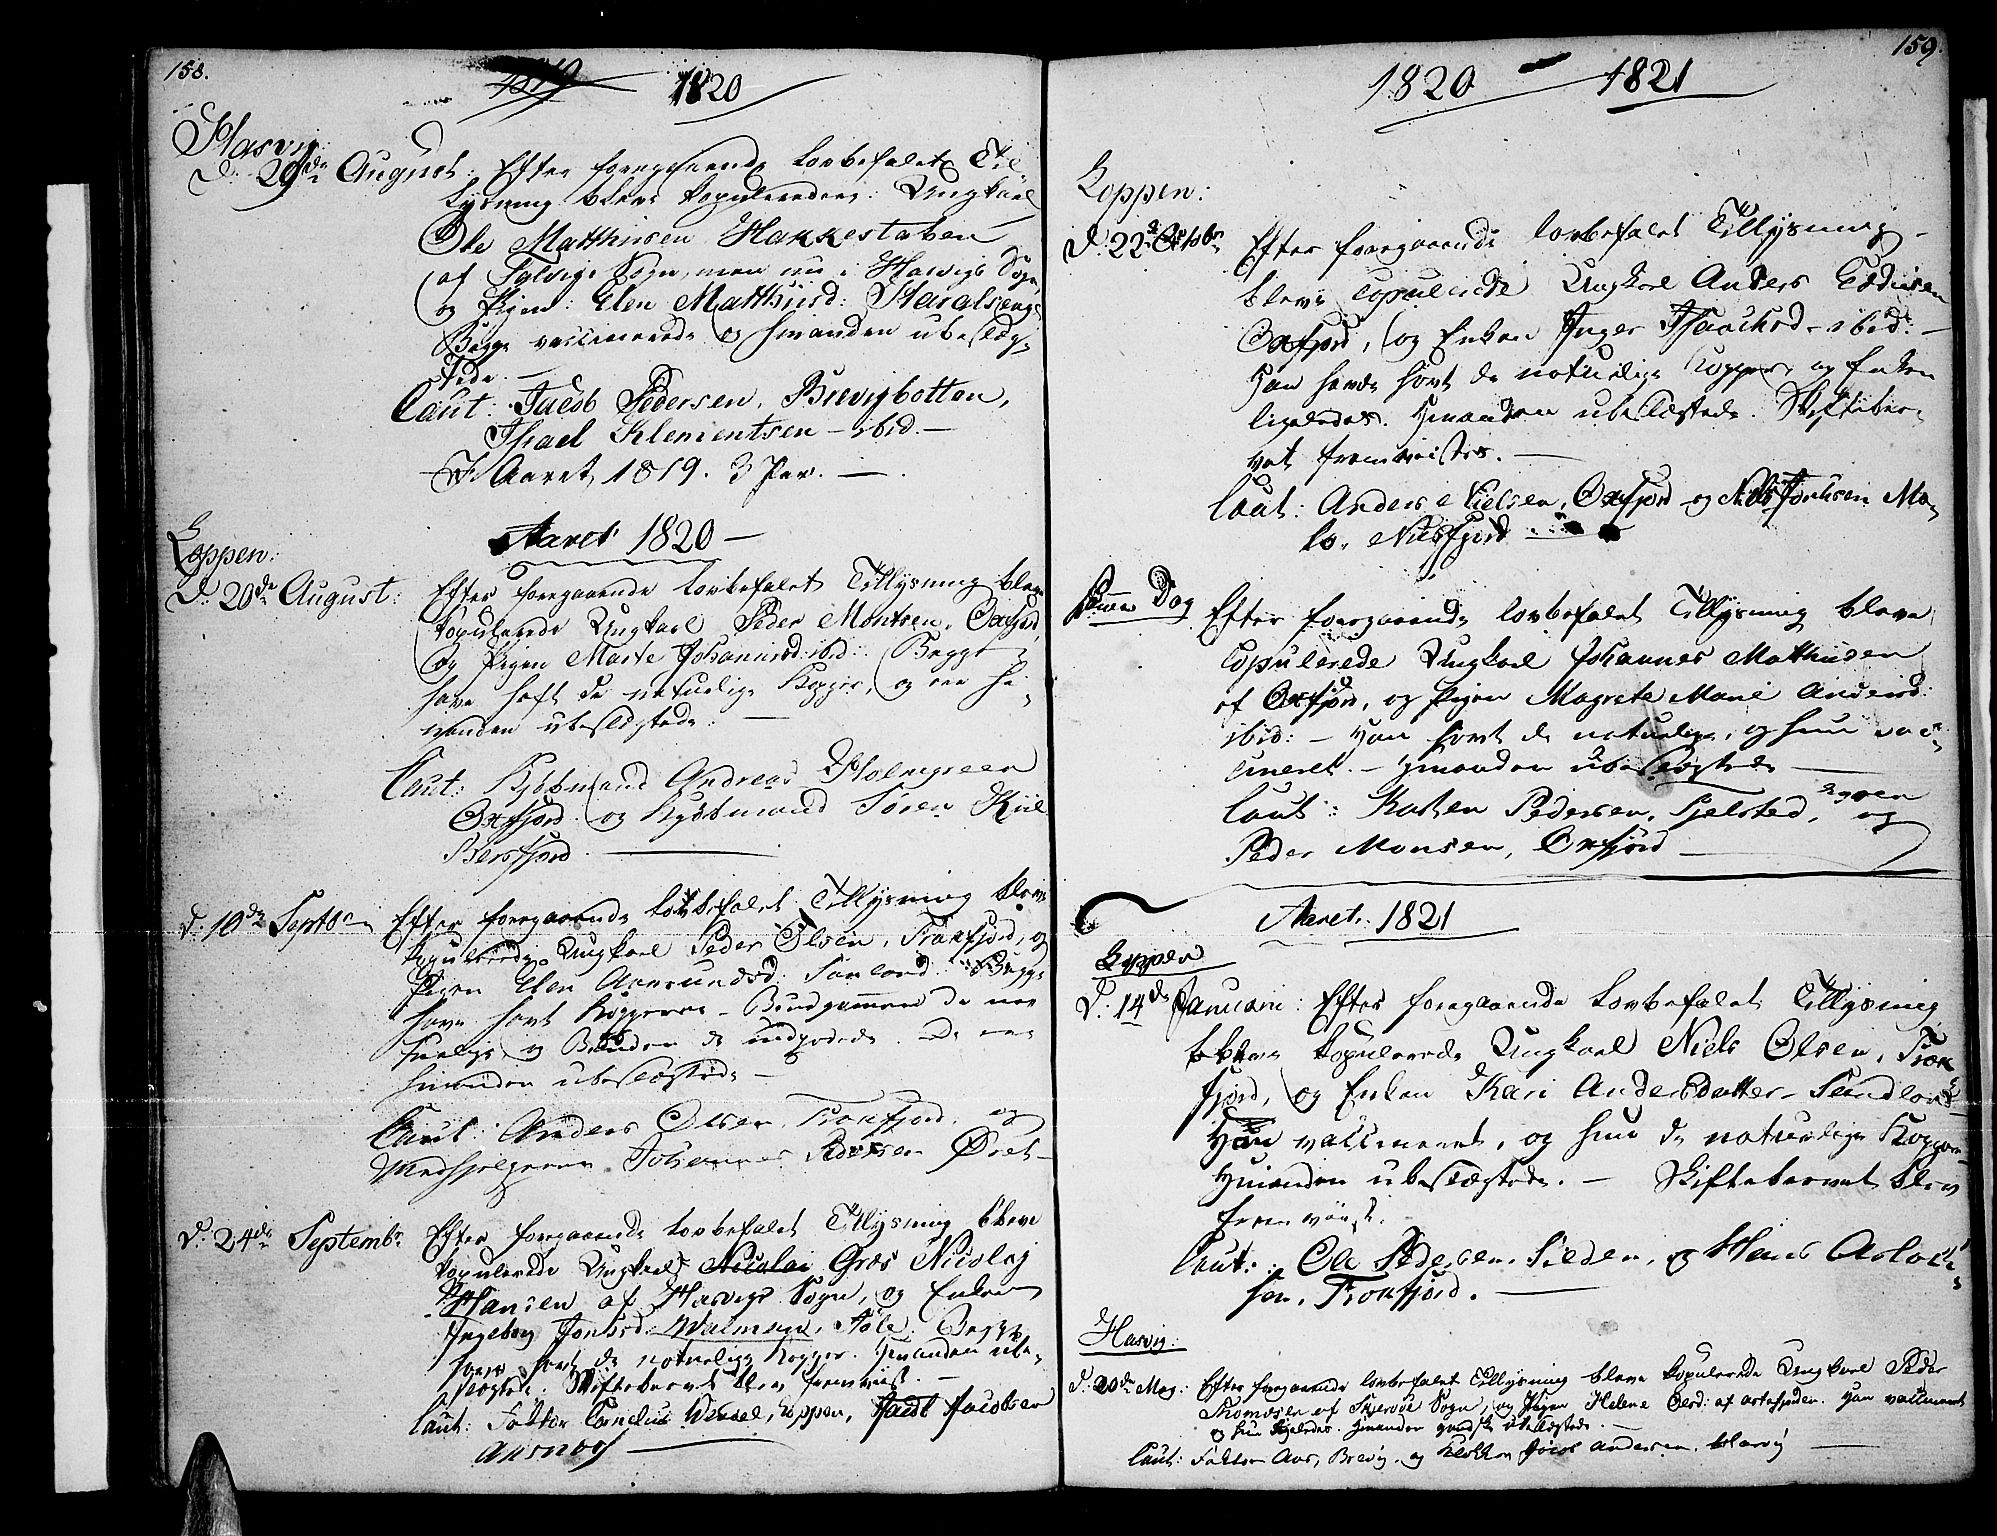 158.
1819 1820
Hasvig:
D: 29de August: Efter foregaaende lovbefalet Til
lysning bleve kopulerede: Ungkarl
Ole Matthisen Hakkestaben
af Sylvigs Sogn, men nu i Hasvigs Sogn,
og Pigen: Elen Matthisd:
Begge vaccinerede og hinanden ubeslæg-
tede. —
Caut: Jacob Pedersen, Brevigbotten,
Israel Klementsen — ibid. —
I Aaret 1819. 3 Par. —
Aaret 1820 —
Loppen:
D: 20de August: Efter foregaaende lovbefalet Tillysning bleve
kopulerede Ungkarl Peder Montsen, Oxfjord,
og Pigen Marte Johannisd: ibid: Begge
have haft de naturlige Kopper, og ere hi-
nanden ubeslægtede. —
Caut: Kjøbmand Andreas Holmgreen
Oxfjord. og Kjøbmand Søren Kiil
Bersfjord —
D. 10de Septbr Efter foregaaende lovbefalet Tillysning bleve
kopulerede Ungkarl Peder Olsen, Tronfjord, og
Pigen Elen Aamundsd: Sørland: Begge
have havt Kopperne — Brudgommen de na-
turlige og Bruden de indpodede. De ere
hinanden ubeslægtede —
Caut: Anders Olsen Tronfjord, og
Johannes Pedersen Øret —
D. 24de Septembr Efter foregaaende lovbefalet Tillysning bleve
kopulerede Ungkarl Nicolai Gros Nicolaj
Hansen af Hasvigs Sogn, og Enken
Ingeborg Jonasd: Walmsen, Begge
have havt de naturlige Kopper. Hinanden ube-
slægtede. Skiftebrevet blev fremviist. —
Caut: Faktor Cornelius Wensel, Loppen, Jacob Jacobsen
Ansnoes —
159.
1820 — 1821
Loppen:
D: 22de Octobr Efter foregaaende lovbefalet Tillysning —
bleve copulerede Ungkarl Anders Eddisen
Oxfjord, og Enken Inger Isaachsd — ibid: —
Han havde havt de naturlige Kopper, og Enken
ligeledes. Hinanden ubeslægtede. Skiftebre-
vet fremvistes. —
Caut: Anders Nielsen, Oxfjord og Nils Jonsen Ma-
lo, Nusfjord —
Samme Dag Efter foregaaende lovbefalet Tillysning bleve
copulerede Ungkarl Johannes Matthisen
af Oxfjord, og Pigen Magrete Marie Andersd:
ibid: — Han havt de naturlige, og hun vac-
cineret. — Hinanden ubeslægtede —
Caut: Karsten Pedersen, Fjelsted, og
Peder Monsen, Oxfjord —
Aaret 1821
Loppen
D. 14de Januari: Efter foregaaende lovbefalet Tillysning
bleve kopulerede Ungkarl Niels Olsen, Tron
fjord, og Enken Kari Andersdatter — Sandland
Han vaccineret, og hun de naturlige Kopper
Hinanden ubeslægtede. — Skiftebrevet blev
fremviist.
Caut: Ole Pedersen, Silden, og Hans Aslach-
sen, Tronfjord. —
Hasvig:
D: 20de May: Efter foregaaende lovbefalet Tillysning bleve kopulerede Ungkarl Peder
Thomasen af Skjervøe Sogn, og Pigen Helene Olsd: af Han vaccineret
og hun ligeledes. Hinanden ganske ubeslægtede. —
Caut: Faktor Aas, Brevig. og Klokker Jacob Andersen, Hasvig —